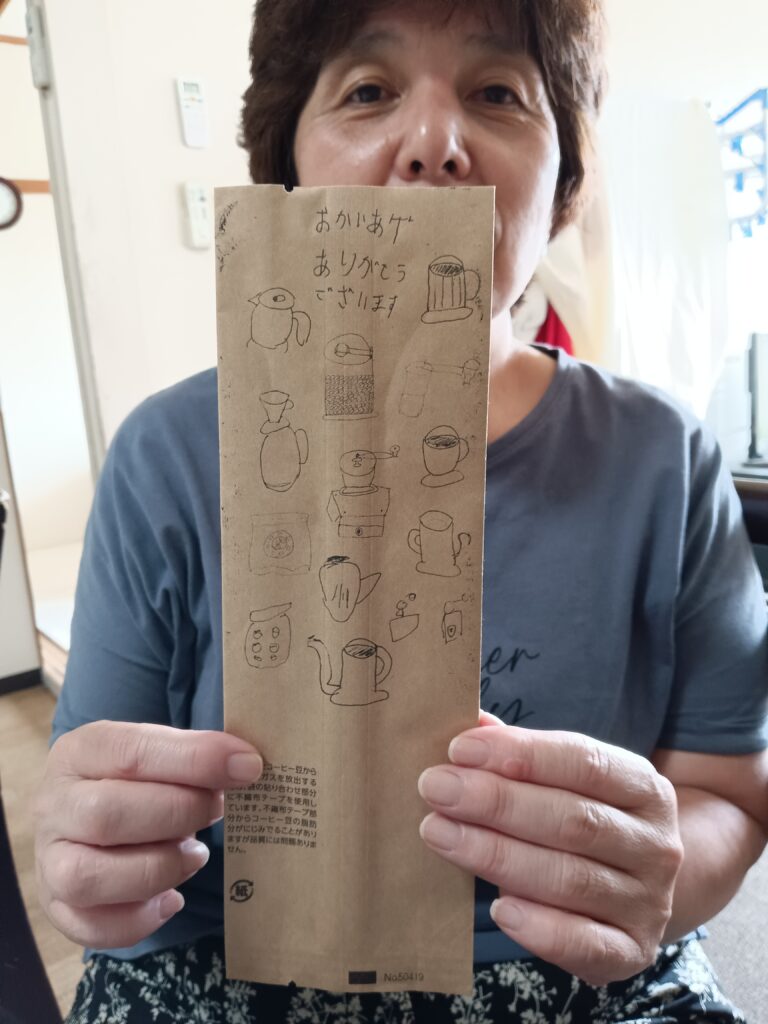 おかいあげ
ありがとう
ございます
コーヒー豆から
ガスを放出する
の貼り合わせ部分
に不織布テープを使用し
ています。不織布テープ部
分からコーヒー豆の脂肪
分がにじみでることがあり
ますが品質には問題ありま
せん。
紙
No50419